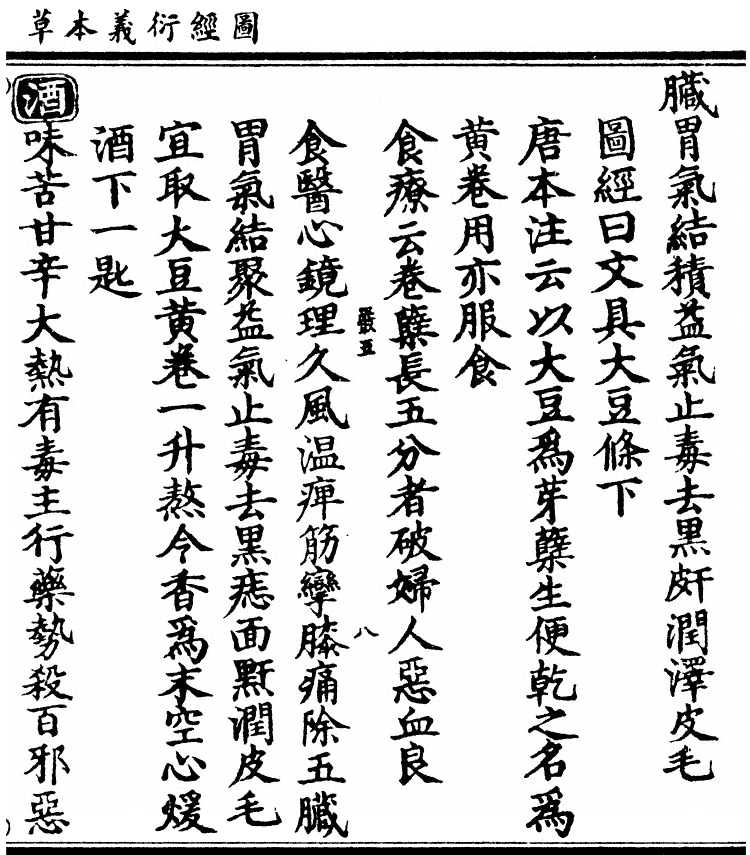 圖經衍義本草
臟胃氣結積益氣止毒去黑皯潤澤皮毛
圖經曰文具大豆條下
唐本注云以大豆爲芽蘖生便乾之名爲
黄卷用亦服食
食療云卷蘖長五分者破婦人惡血良
發五
八
食醫心鏡理久風温痺筋攣膝痛除五臟
胃氣結聚益氣止毒去黒痣面䵟潤皮毛
宜取大豆黄卷一升熬令香爲末空心煖
酒下一匙
酒
味苦甘辛大熱有毒主行藥勢殺百邪惡